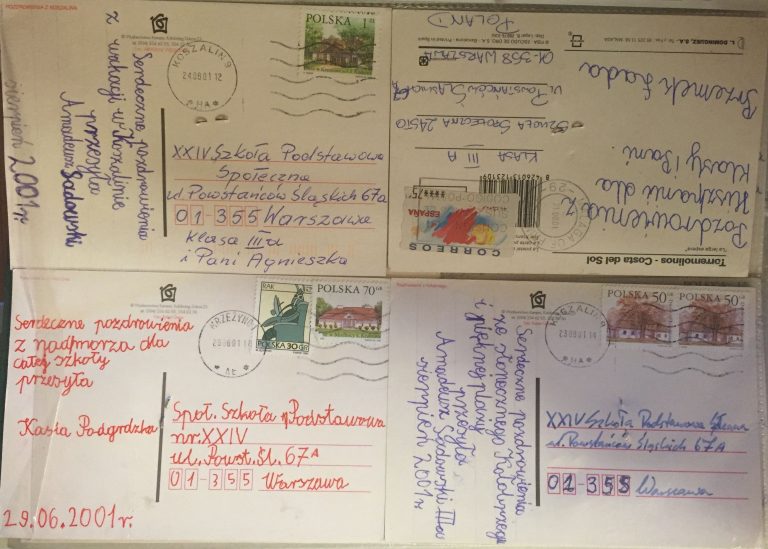 POZDROWIENIA Z KOSZALINA
Serdeczne pozdrowienia
z wakacji w Koszalinie
przesyła
Amadeusz Sadowski
sierpień 2001r.
KOSZALIN 9
240801 12
* HA *
POLSKA
XXIV Szkoła Podstawowa
Społeczna
ul. Powstańców Śląskich 67a
01-355 Warszawa
Klasa IIIa
i Pani Agnieszka
L. DOMINGUEZ, S.A.
POLAND
01-358 WARSZAWA
UL. POWSTAŃCÓW ŚLĄSKICH
SZKOŁA SPOŁECZNA
KLASA III A
8 426013 123109
ESPAÑA
CORREOS
Pozdrowienia z
Hiszpanii dla
Klasy i Pani
Przemek Łada
"La larga espera"
Torremolinos - Costa del Sol
Serdeczne pozdrowienia
z nadmorza dla
całej szkoły
przesyła
Kasia Podgrdzka
29.06.2001r.
RAK
POLSKA 30 GR
POLSKA 70 GR
Społ. Szkoła Podstawowa
nr. XXIV
ul. Powst. Śl. 67A
01-355 Warszawa
Serdeczne pozdrowienia
ze słonecznego Kołobrzegu
i pięknej plaży
przesyła
Amadeusz Sadowski IIIa
sierpień 2001r.
KOSZALIN
230801 14
* HA *
POLSKA 50 GR
POLSKA 50 GR
XXIV Szkoła Podstawowa
ul. Powstańców Śląskich 67A
01-355 Warszawa